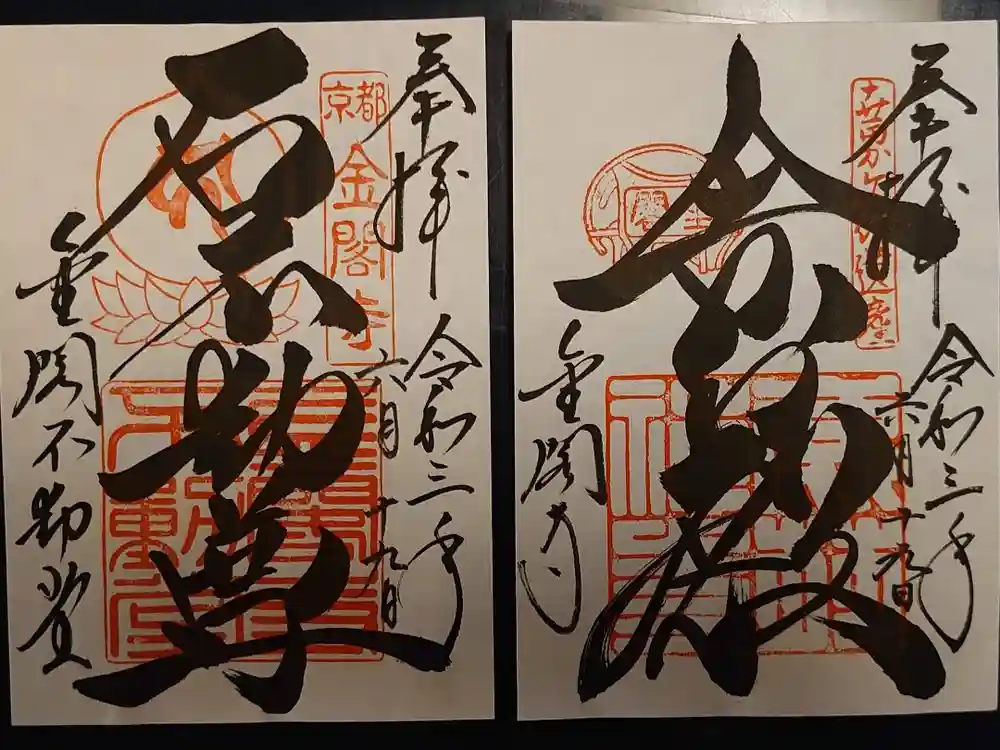 奉拝
令和三年
六月十九日
京都
金閣寺
石不動尊
金閣不動堂
奉拝
令和三年
六月十九日
世界文化遺産
舎利殿
金閣寺